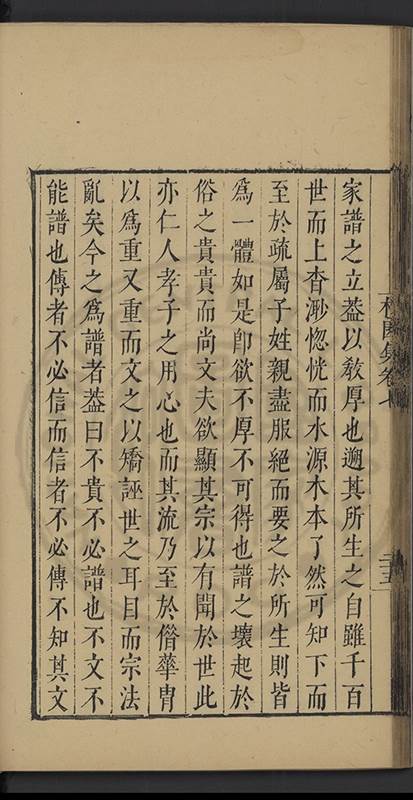 家譜之立葢以敎厚也遡其所生之自雖千百
世而上杳渺惚恍而水源木本了然可知下而
至於疏屬子姓親盡服絕而要之於所生則皆
爲一體如是卽欲不厚不可得也譜之壞起於
俗之貴貴而尚文夫欲顯其宗以有聞於世此
亦仁人孝子之用心也而其流乃至於僭華胄
以爲重又重而文之以矯誣世之耳目而宗法
亂矣今之爲譜者葢曰不貴不必譜也不文不
能譜也傳者不必信而信者不必傳不知其文